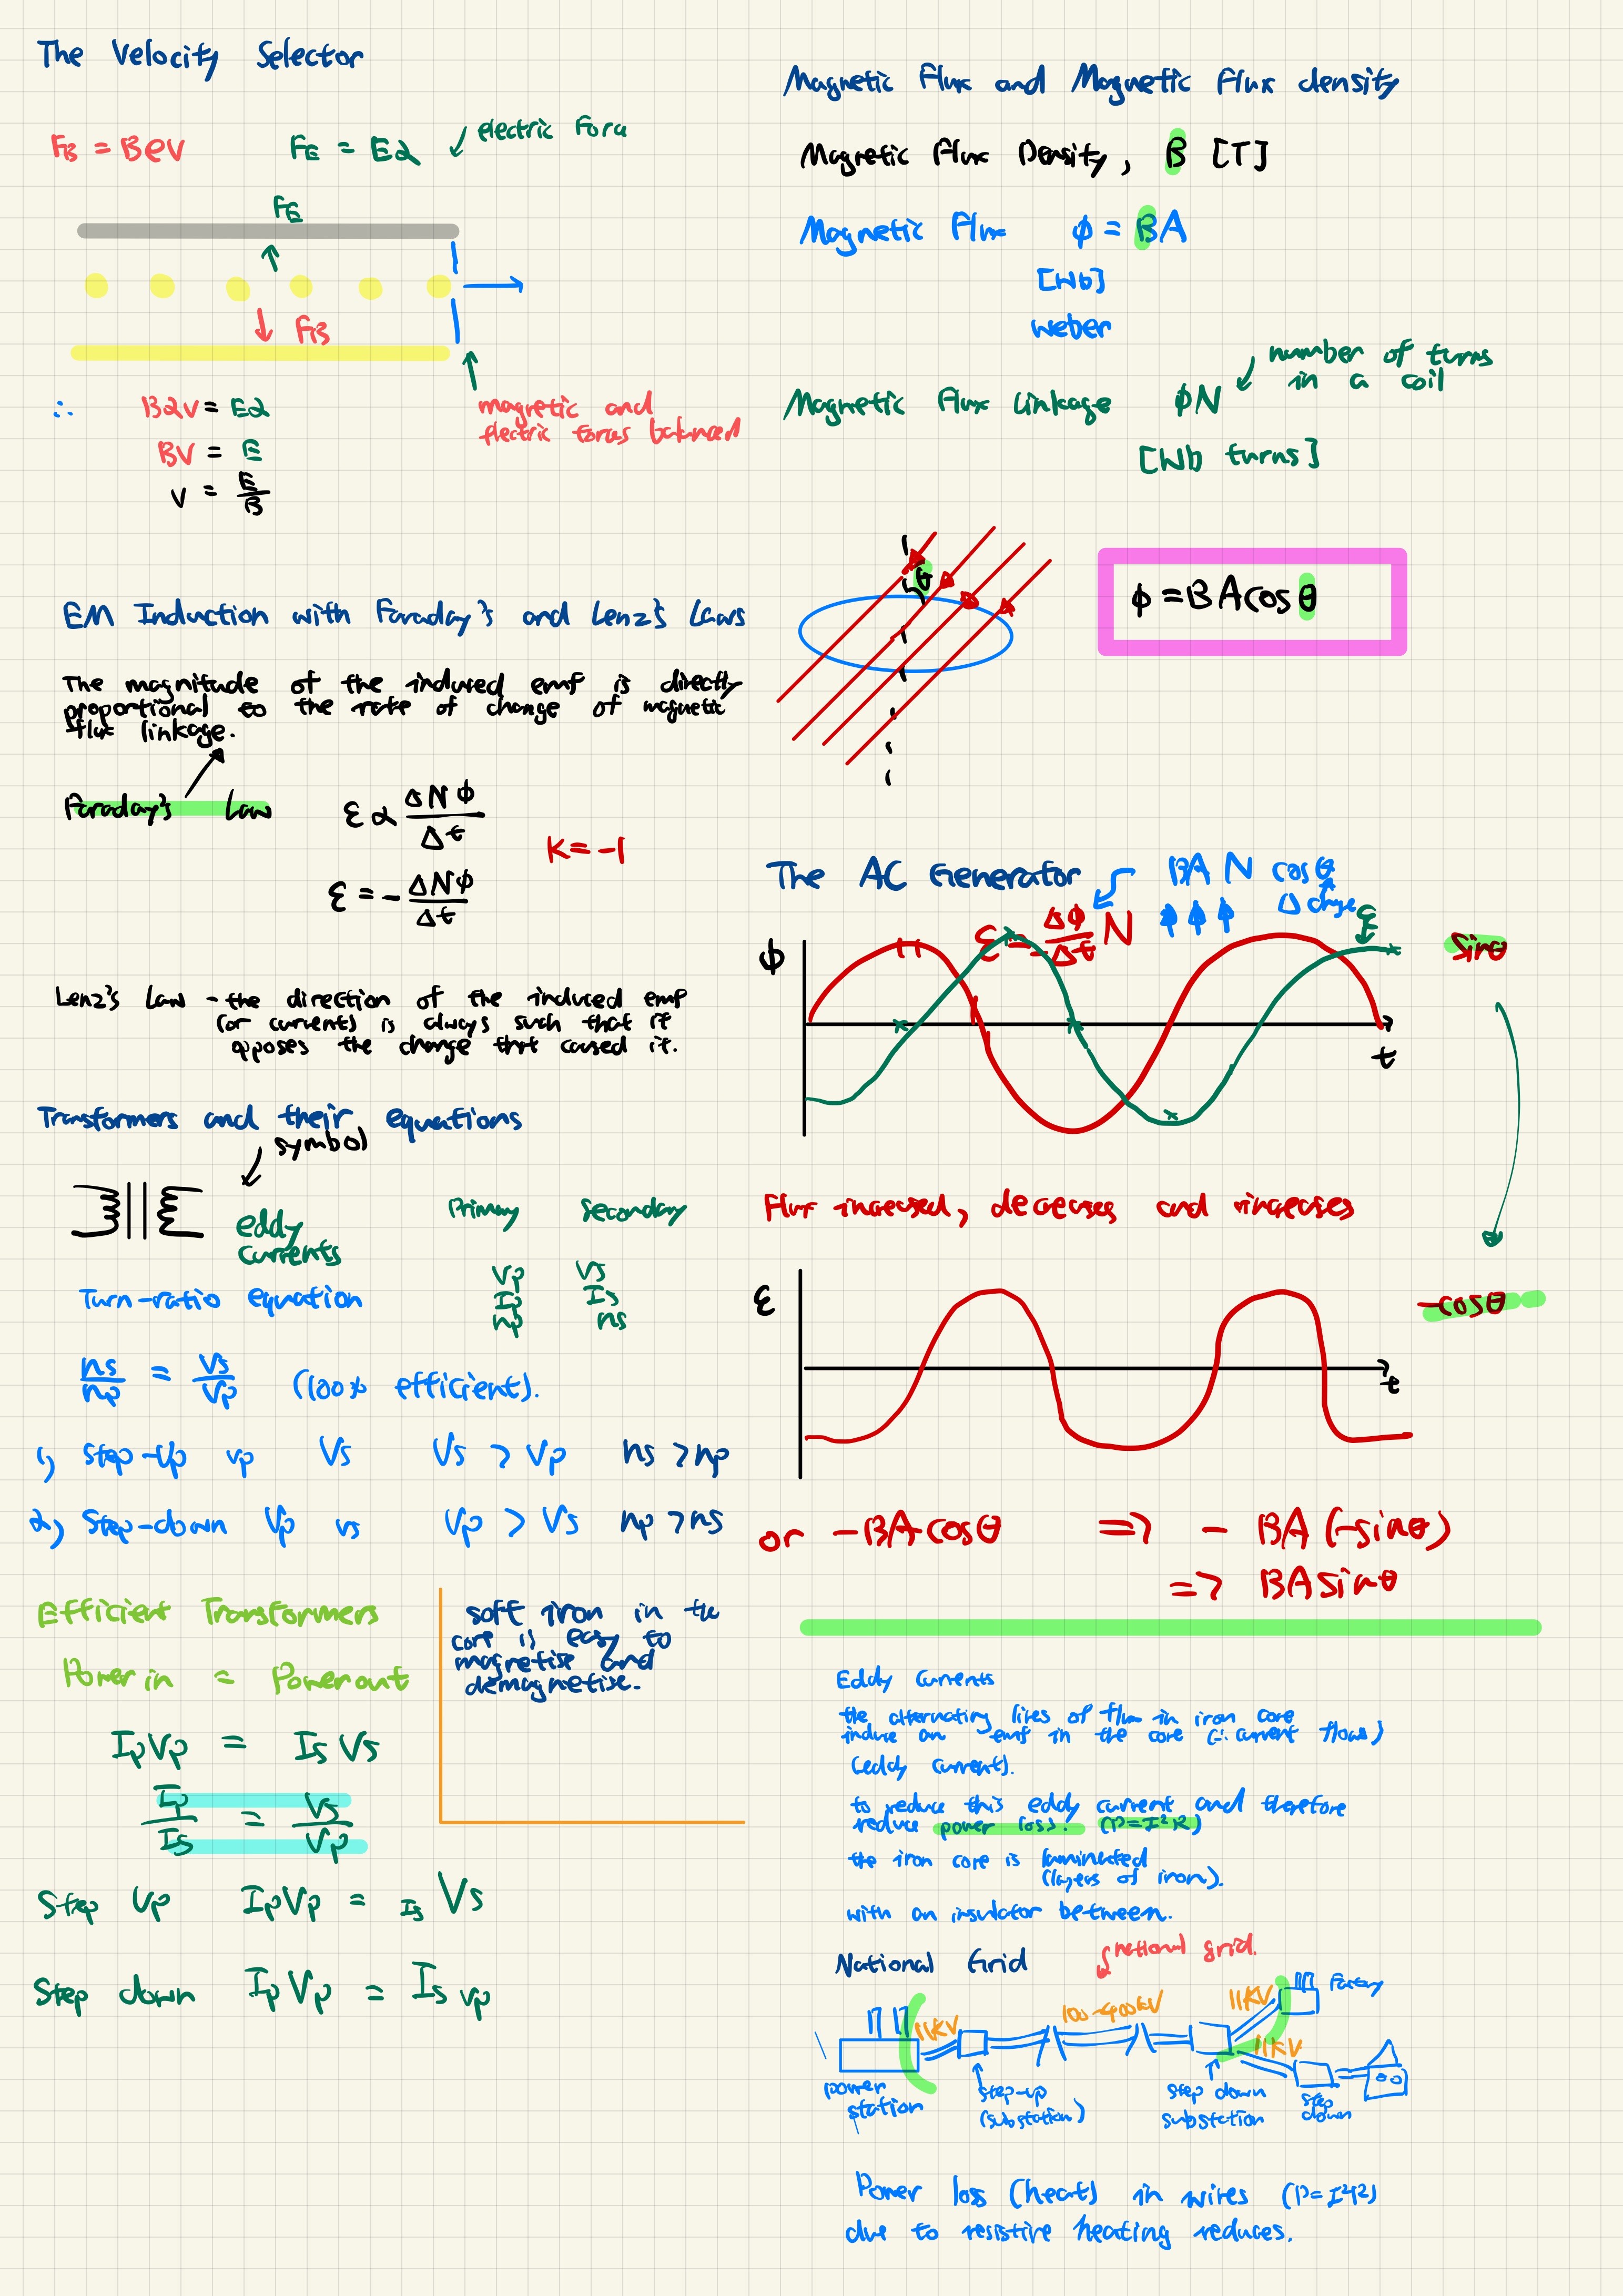 The Velocity Selector
F_B = BeV
F_E = EQ
electric Force
F_E
F_B
magnetic and
electric forces balanced
∴ BQv = EQ
BV = E
v = E/B
EM Induction with Faraday's and Lenz's Laws
The magnitude of the induced emf is directly
proportional to the rate of change of magnetic
flux linkage.
Faraday's Law
ε ∝ ΔNϕ/Δt
K = -1
ε = - ΔNϕ/Δt
Lenz's Law - the direction of the induced emf
(or currents) is always such that it
opposes the change that caused it.
Transformers and their equations
symbol
eddy
currents
Primary Secondary
Vp Vs
Ip Is
np ns
Turn-ratio equation
ns/np = Vs/Vp (100% efficient).
1) Step-Up Vp Vs Vs > Vp ns > np
2) Step-down Vp Vs Vp > Vs np > ns
Efficient Transformers
Power in = Power out
IpVp = IsVs
Ip/Is = Vs/Vp
Step Up IpVp = Is Vs
Step down IpVp = Is Vp
soft iron in the
core is easy to
magnetise and
demagnetise.
Magnetic Flux and Magnetic Flux density
Magnetic Flux Density, B [T]
Magnetic Flux ϕ = BA
[Wb]
weber
number of turns
in a coil
Magnetic Flux Linkage ϕN
[Wb turns]
θ
ϕ = BAcosθ
The AC Generator
BA N cosθ
Δ change
ε = - Δϕ/Δt N
ε
ϕ
sinθ
t
Flux increased, decreases and increases
ε
-cosθ
t
or -BAcosθ => - BA(-sinθ)
=> BAsinθ
Eddy Currents
the alternating lines of flux in iron core
induce an emf in the core (∴ current flows)
(eddy current).
to reduce this eddy current and therefore
reduce power loss. (P=I²R)
the iron core is laminated
(layers of iron).
with an insulator between.
National Grid
national grid.
11KV
100-400kV
11KV
Factory
11KV
power
station
step-up
(substation)
step down
substation
step
down
Power loss (heat) in wires (P=I²R)
due to resistive heating reduces.